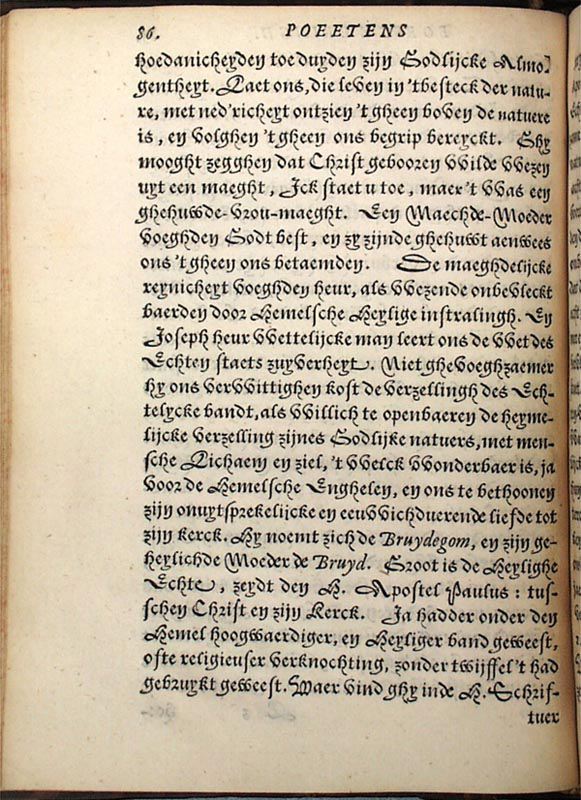 86. POEETENS
hoedanicheyden toe duyden zijn Godlijcke Almo-
gentheyt. Laet ons, die leven in 'tbesteck der natu-
re, met ned'richeyt ontzien 't gheen boven de natuere
is, en volghen 't gheen ons begrip bereyckt. Ghy
mooght zegghen dat Christ gebooren VVilde VVezen
uyt een maeght, Ick staet u toe, maer 't VVas een
ghehuwde-vrou-maeght. Een Maechde-Moeder
voeghden Godt best, en zy zijnde ghehuwt aenwees
ons 't gheen ons betaemden. De maeghdelijcke
reynicheyt voeghden heur, als VVezende onbevleckt
baerden door Hemelsche Heylige instralingh. En
Joseph heur VVettelijcke man leert ons de VVet des
Echten staets zuyverheyt. Niet ghevoeghzaemer
hy ons verVVittighen kost de verzellingh des Ech-
telycke bandt, als VVillich te openbaeren de heyme-
lijcke verzelling zijnes Godlijke natuers, met men-
sche Lichaem en ziel, 't VVelck VVonderbaer is, ja
voor de Hemelsche Enghelen, en ons te bethoonen
zijn onuytsprekelijcke en eeuVVichduerende liefde tot
zijn kerck. Hy noemt zich de Bruydegom, en zijn ge-
heylichde Moeder de Bruyd. Groot is de Heylighe
Echte, zeydt den H. Apostel Paulus: tus-
schen Christ en zijn Kerck. Ja hadder onder den
Hemel hoogwaerdiger, en Heyliger band geweest,
ofte religieuser verknochting, zonder twijffel 't had
gebruykt geweest. Waer vind ghy inde H. Schrif-
tuer